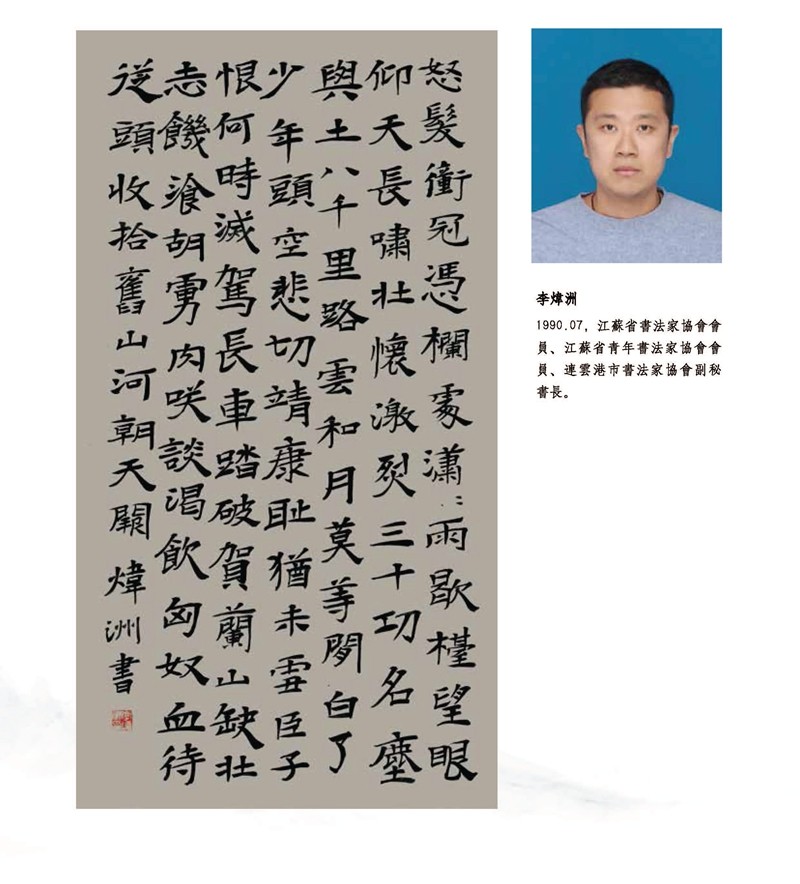 怒髮衝冠憑欄處瀟〻雨歇檯望眼
仰天長嘯壯懷激烈三十功名塵
與土八千里路雲和月莫等閒白了
少年頭空悲切靖康耻猶未雪臣子
恨何時滅駕長車踏破賀蘭山缺壯
志饑飡胡虜肉咲談渴飲匈奴血待
從頭收拾舊山河朝天闕 煒洲書
李煒洲
1990.07，江蘇省書法家協會會
員、江蘇省青年書法家協會會
員、連雲港市書法家協會副秘
書長。